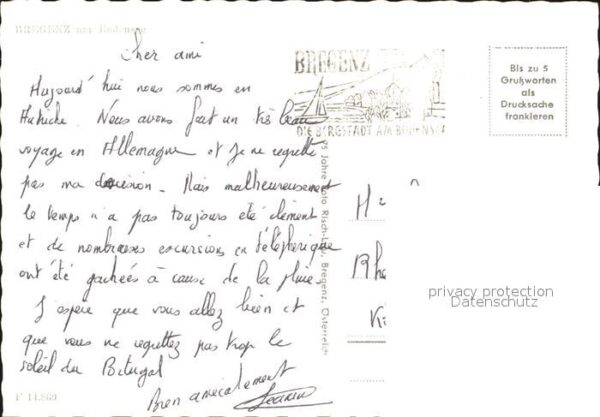 BREGENZ am Bodensee
Cher ami
Aujourd'hui nous sommes en
Autriche. Nous avons fait un très beau
voyage en Allemagne et je ne regrette
pas ma décision. Mais malheureusement
le temps n'a pas toujours été clément
et de nombreuses excursions en téléphérique
ont été gachées à cause de la pluie.
J'espère que vous allez bien et
que vous ne regrettez pas trop le
soleil du Portugal
Bien amicalement
F 11.869
BREGENZ
DIE BERGSTADT AM BODENSEE
Foto Risch-Lau, Bregenz, Österreich
Bis zu 5
Grußworten
als
Drucksache
frankieren
privacy protection
Datenschutz